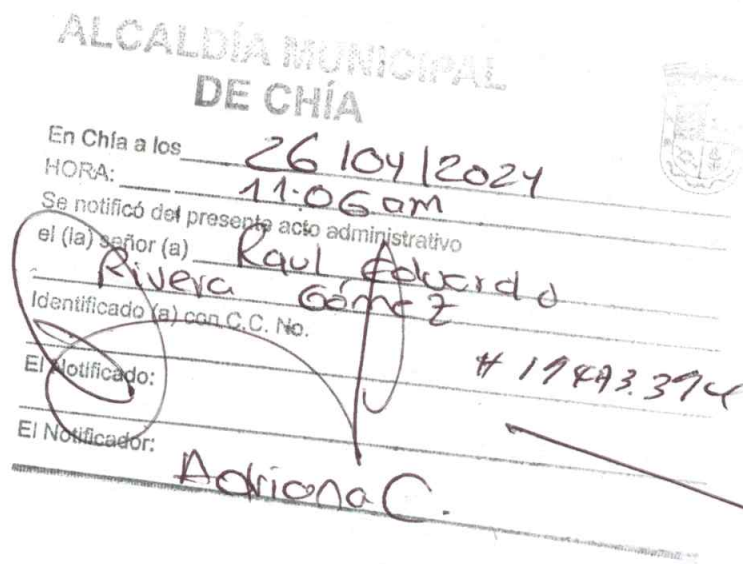 ALCALDÍA MUNICIPAL
DE CHÍA
En Chía a los 26/04/2024
HORA: 11:06 am
Se notificó del presente acto administrativo
el (la) señor (a) Raul Eduardo
Rivera Gómez
Identificado (a) con C.C. No.
El Notificado:
El Notificador:
Adriana C.